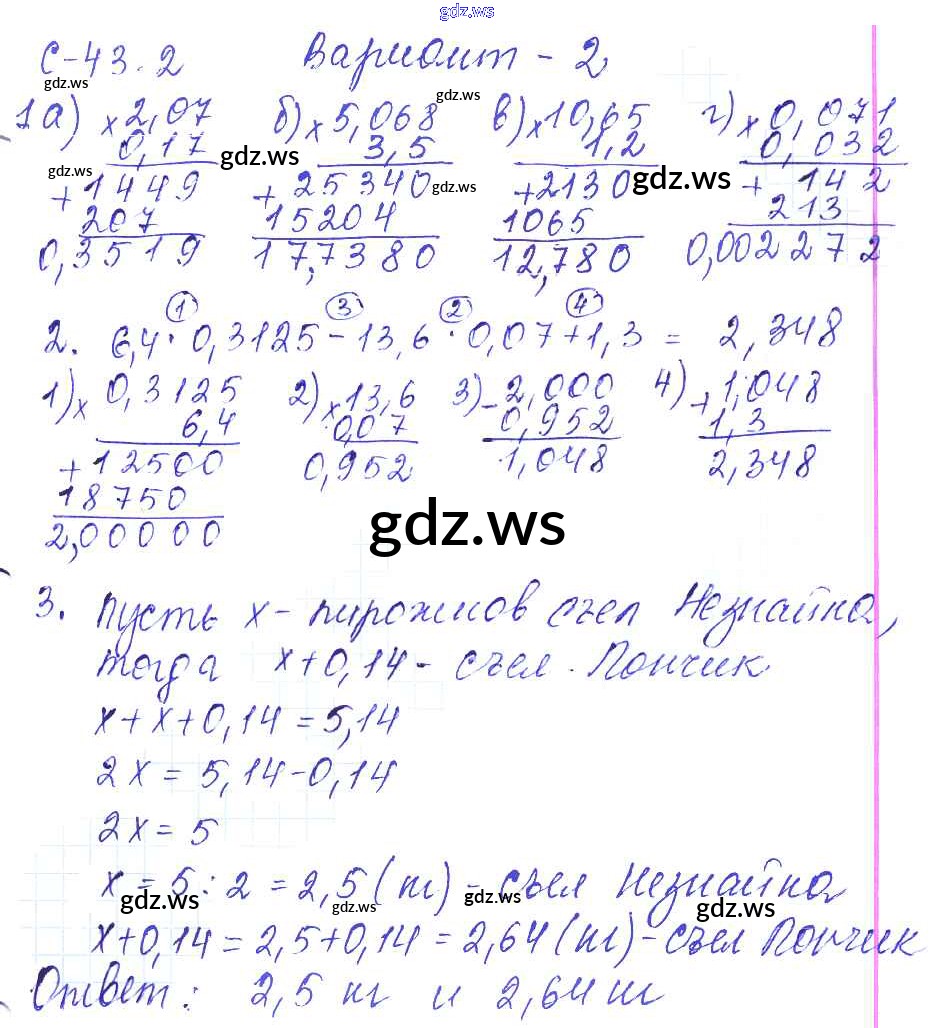 gdz.ws
С-43.2 Вариант - 2
gdz.ws gdz.ws
1а) × 2,07 б) × 5,068 в) × 10,65 г) × 0,071
0,17 3,5 1,2 0,032
gdz.ws gdz.ws gdz.ws gdz.ws
+ 1449 + 25340 + 2130 + 142
207 15204 1065 213
0,3519 17,7380 12,780 0,002272
1 3 2 4
2. 6,4 · 0,3125 - 13,6 · 0,07 + 1,3 = 2,348
1) × 0,3125 2) × 13,6 3) - 2,000 4) + 1,048
6,4 0,07 0,952 1,3
+ 12500 0,952 1,048 2,348
18750
2,00000
gdz.ws
3. Пусть х - пирожков съел Незнайка,
тогда х+0,14 - съел Пончик
х + х + 0,14 = 5,14
2х = 5,14 - 0,14
2х = 5
х = 5 : 2 = 2,5 (кг) - съел Незнайка
gdz.ws gdz.ws gdz.ws
х+0,14 = 2,5+0,14 = 2,64 (кг) - съел Пончик
Ответ: 2,5 кг и 2,64 кг